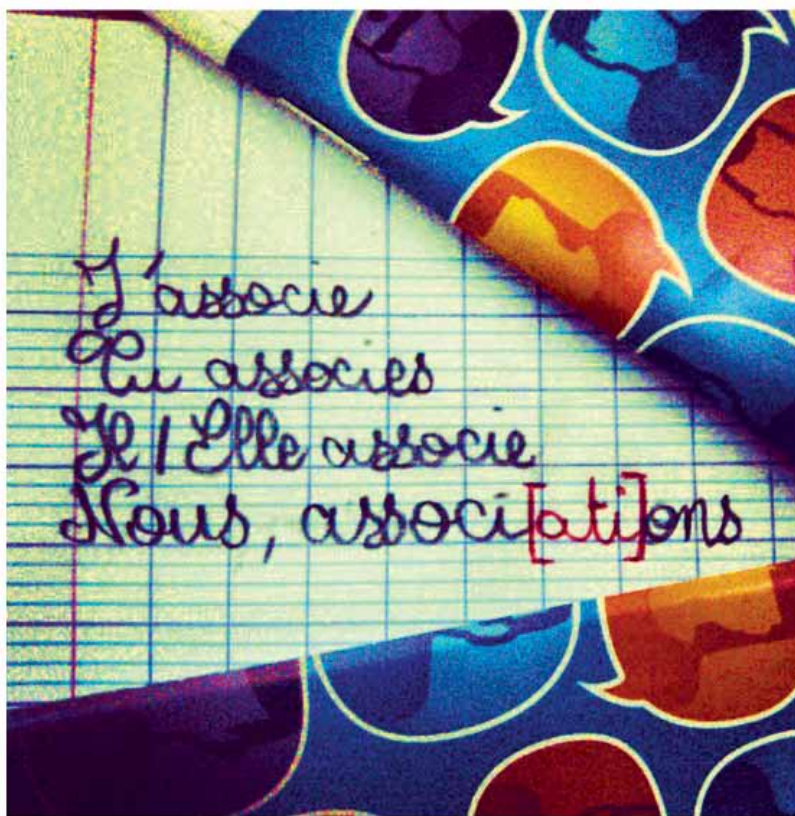 J'associe
Tu associes
Il / Elle associe
Nous, associ[ati]ons